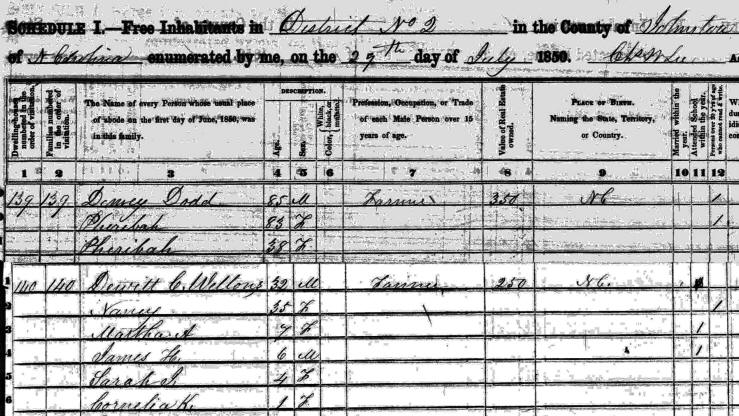 SCHEDULE I.—Free Inhabitants in District No 2 in the County of Johnston
of N Carolina enumerated by me, on the 29th day of July 1850.
DESCRIPTION.
Dwelling-houses numbered in the order of visitation.
Families numbered in the order of visitation.
The Name of every Person whose usual place of abode on the first day of June, 1850, was in this family.
Age.
Sex.
Color, White, black, or mulatto.
Profession, Occupation, or Trade of each Male Person over 15 years of age.
Value of Real Estate owned.
PLACE OF BIRTH. Naming the State, Territory, or Country.
Married within the year.
Attended School within the year.
Persons over 20 y'rs of age who cannot read & write.
1 2 3 4 5 6 7 8 9 10 11 12
139 139 Dodd 85 M Farmer 350 NC 1
Pheribah 83 F 1
Pheribah 38 F
1 140 140 Dewitt C. Wellons 32 M Farmer 250 NC.
2 Nancy 35 F 1
3 Martha A 7 F 1
4 James H. 6 M 1
5 Sarah 4 F
6 Cornelia K. 1 F